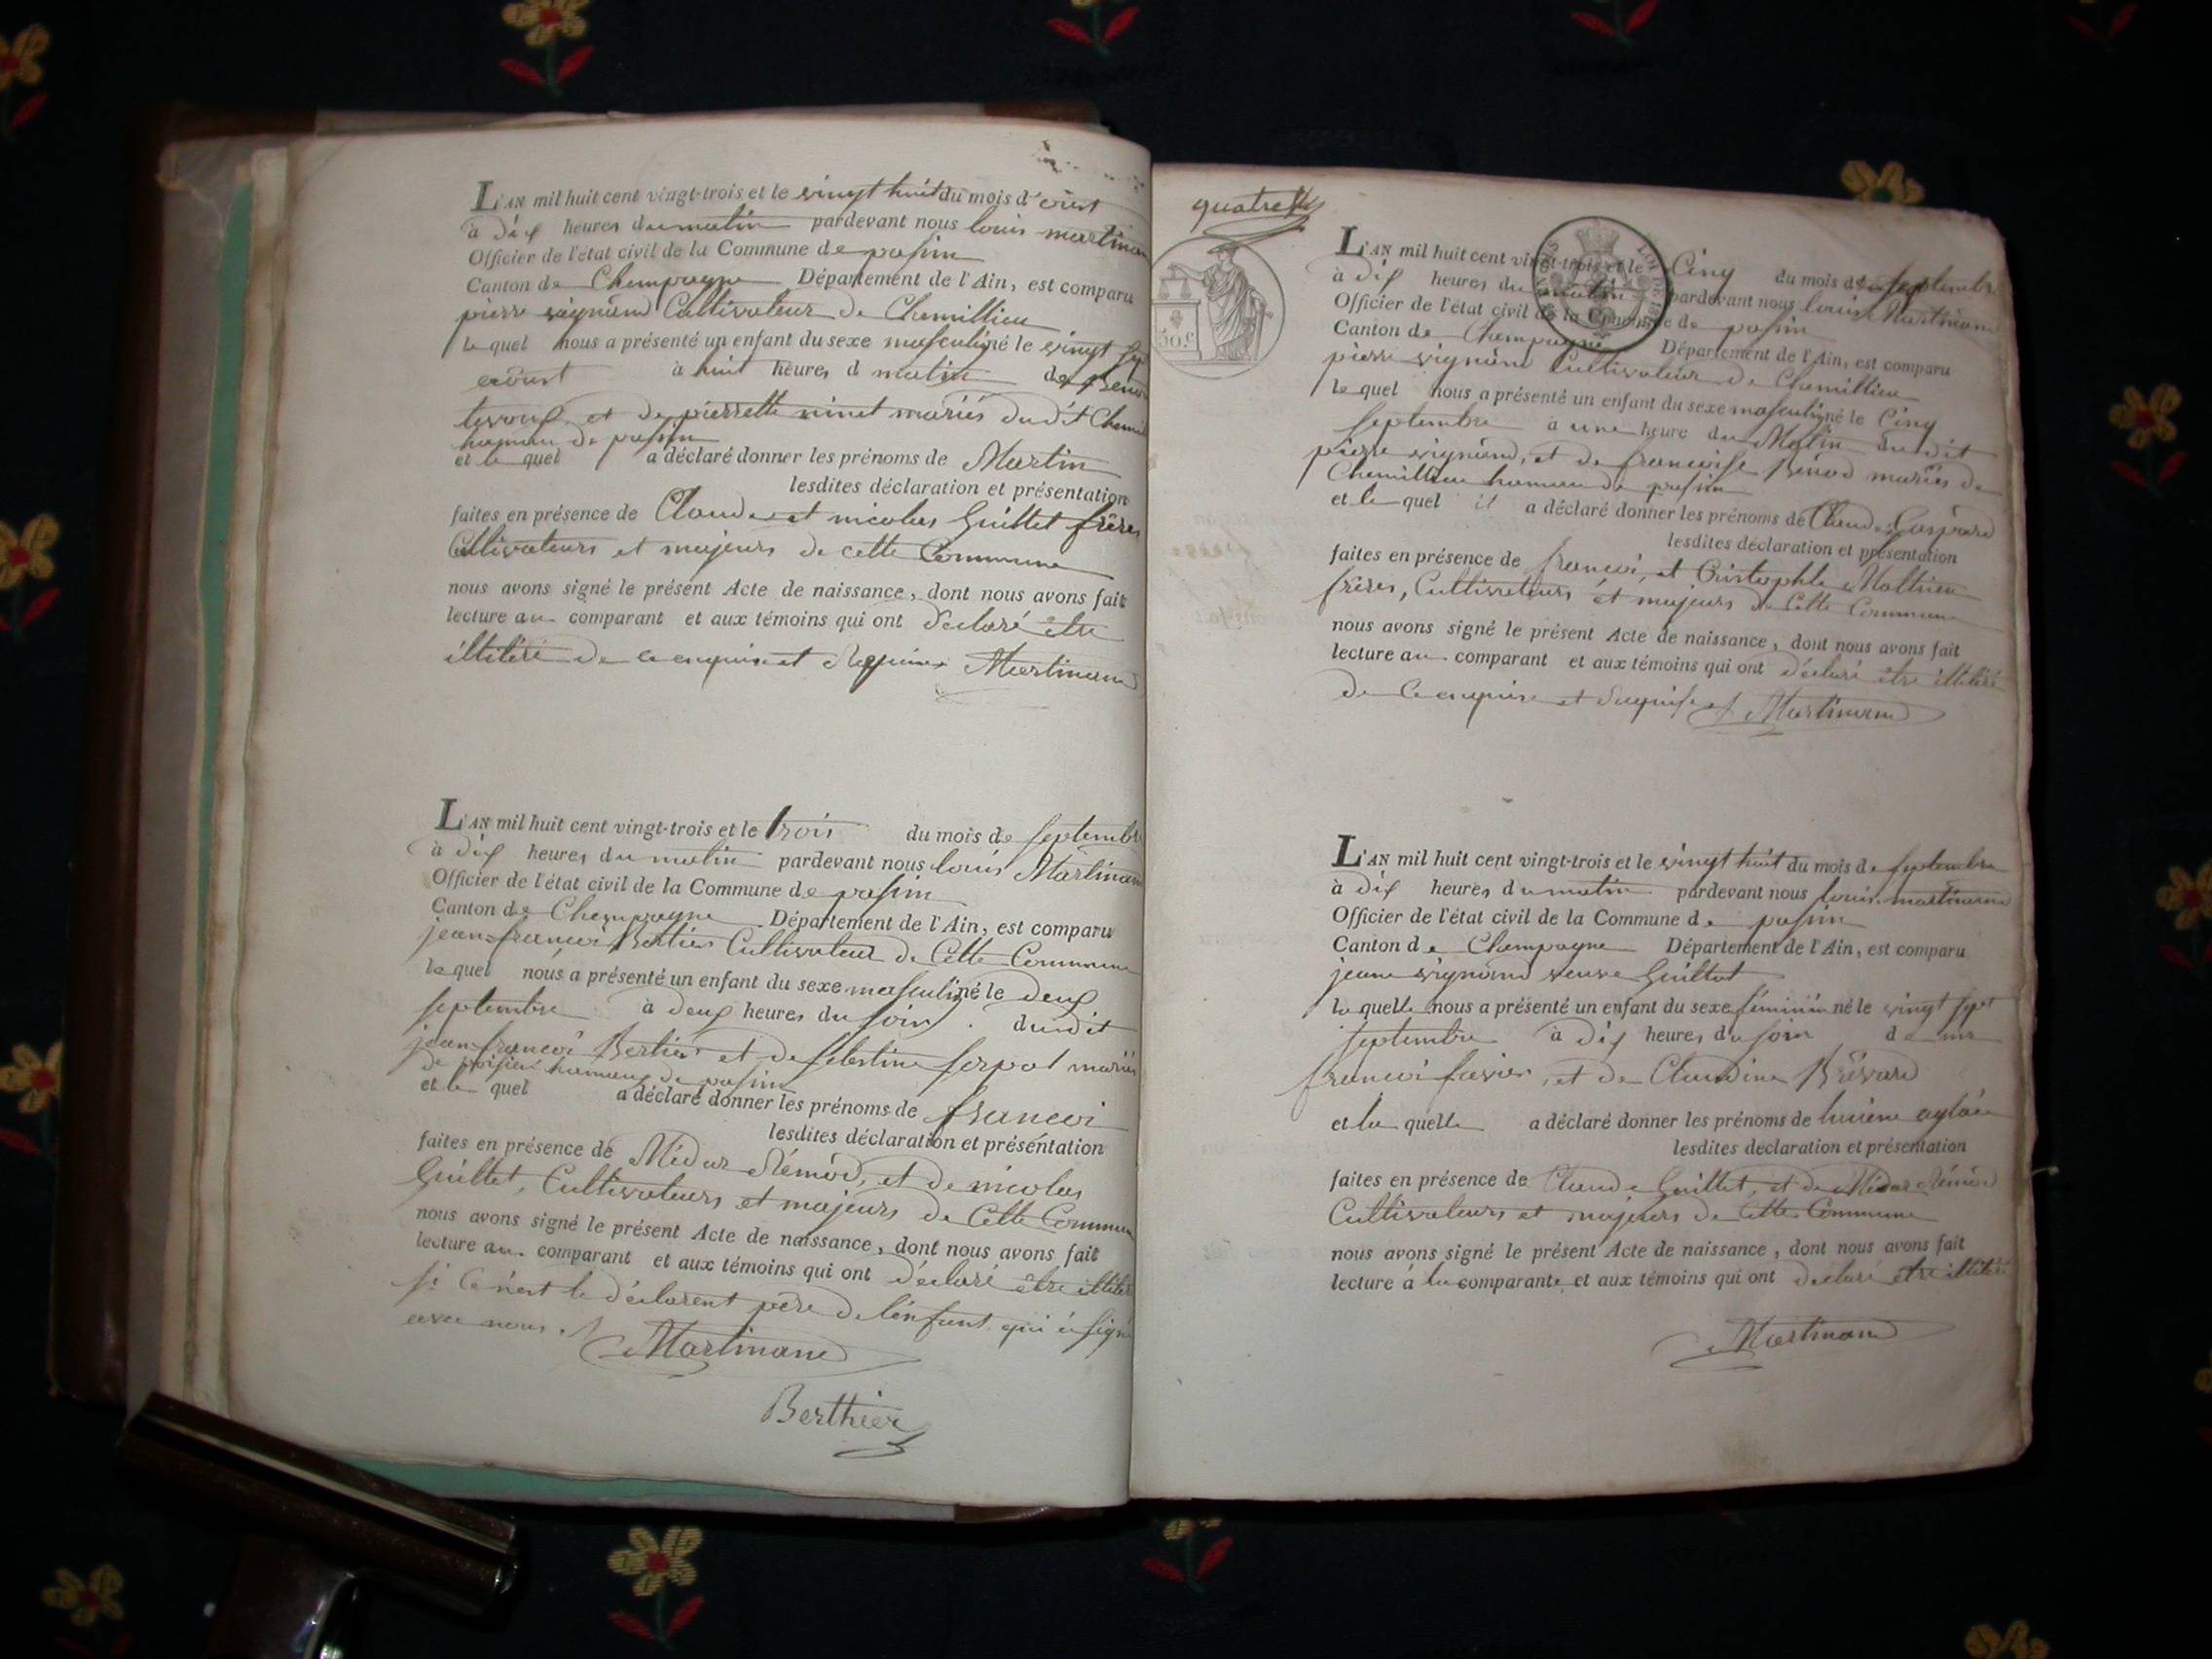 L'AN mil huit cent vingt-trois et le vingt huit du mois d'oust
à dix heures du matin pardevant nous louis martinan
Officier de l'état civil de la Commune de passin
Canton de Champagne Département de l'Ain, est comparu
pierre vignand Cultivateur de Chemillieu
le quel nous a présenté un enfant du sexe masculin né le vingt sep
aoûst à huit heures d matin de Beno
et de pierrette ninet mariés dudit Chemil
hameau de passin
et le quel a déclaré donner les prénoms de Martin
lesdites déclaration et présentation
faites en présence de Claude et nicolas Guillet frères
Cultivateurs et majeurs de cette Commune
nous avons signé le présent Acte de naissance, dont nous avons fait
lecture au comparant et aux témoins qui ont déclaré être
illitéré de ce enquis et Requis Martinand
L'AN mil huit cent vingt-trois et le trois du mois de septembr
à dix heures du matin pardevant nous louis Martinan
Officier de l'état civil de la Commune de passin
Canton de Champagne Département de l'Ain, est comparu
jean-francoi Bertier Cultivateur de Cette Commune
le quel nous a présenté un enfant du sexe masculin né le deux
septembre à deux heures du soir dudit
jean francoi Bertier et de selestine serpol mariés
de hameau de passin
et le quel a déclaré donner les prénoms de francoi
lesdites déclaration et présentation
faites en présence de Médar Rémod, et de nicolas
Guillet, Cultivateurs et majeurs de Cette Commun
nous avons signé le présent Acte de naissance, dont nous avons fait
lecture au comparant et aux témoins qui ont déclaré être illité
si ce n'est le déclarent père de l'enfant qui à signé
avec nous. Martinand
Berthier
quatre
50.c
L'AN mil huit cent vingt-trois et le Cinq du mois de septembre
à dix heures du matin pardevant nous louis Martinand
Officier de l'état civil de la Commune de passin
Canton de Champagne Département de l'Ain, est comparu
pierre vignand Cultivateur de Chemillieu
le quel nous a présenté un enfant du sexe masculin né le Cinq
septembre à une heure du Matin dudit
pierre vignand, et de francoise Bénod mariés de
Chemillieu hameau de passin
et le quel il a déclaré donner les prénoms de Claude Gaspard
lesdites déclaration et présentation
faites en présence de francoi, et Cristophle Mathieu
frères, Cultivateurs et majeurs de Cette Commune
nous avons signé le présent Acte de naissance, dont nous avons fait
lecture au comparant et aux témoins qui ont déclaré être illitéré
de Ce enquis et Requis Martinand
L'AN mil huit cent vingt-trois et le vingt huit du mois de septembre
à dix heures du matin pardevant nous louis martinand
Officier de l'état civil de la Commune de passin
Canton de Champagne Département de l'Ain, est comparu
jeane vignand veuve Guillot
la quelle nous a présenté un enfant du sexe féminin né le vingt sept
septembre à dix heures du soir de mr
francoi favier, et de Claudine Brévard
et la quelle a déclaré donner les prénoms de luciène aglaée
lesdites déclaration et présentation
faites en présence de Claude Guillet, et de Médar Rémod
Cultivateurs et majeurs de Cette Commune
nous avons signé le présent Acte de naissance, dont nous avons fait
lecture à la comparante et aux témoins qui ont déclaré être illitéré
Martinand